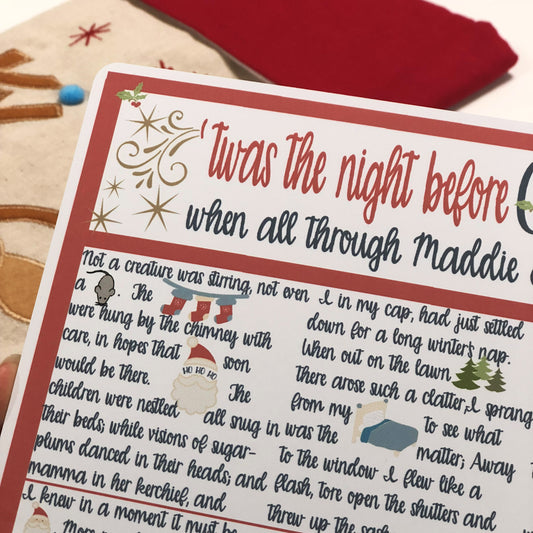 'twas the night before
when all through Maddie
Not a creature was stirring, not even
a . The
were hung by the chimney with
care, in hopes that soon
HO HO HO
would be there. The
children were nestled all snug in
their beds; while visions of sugar-
plums danced in their heads; and
mamma in her kerchief, and
I in my cap, had just settled
down for a long winter's nap.
When out on the lawn
there arose such a clatter, I sprang
from my to see what
was the matter; Away
to the window I flew like a
flash, tore open the shutters and
threw up the sash
I knew in a moment it must be